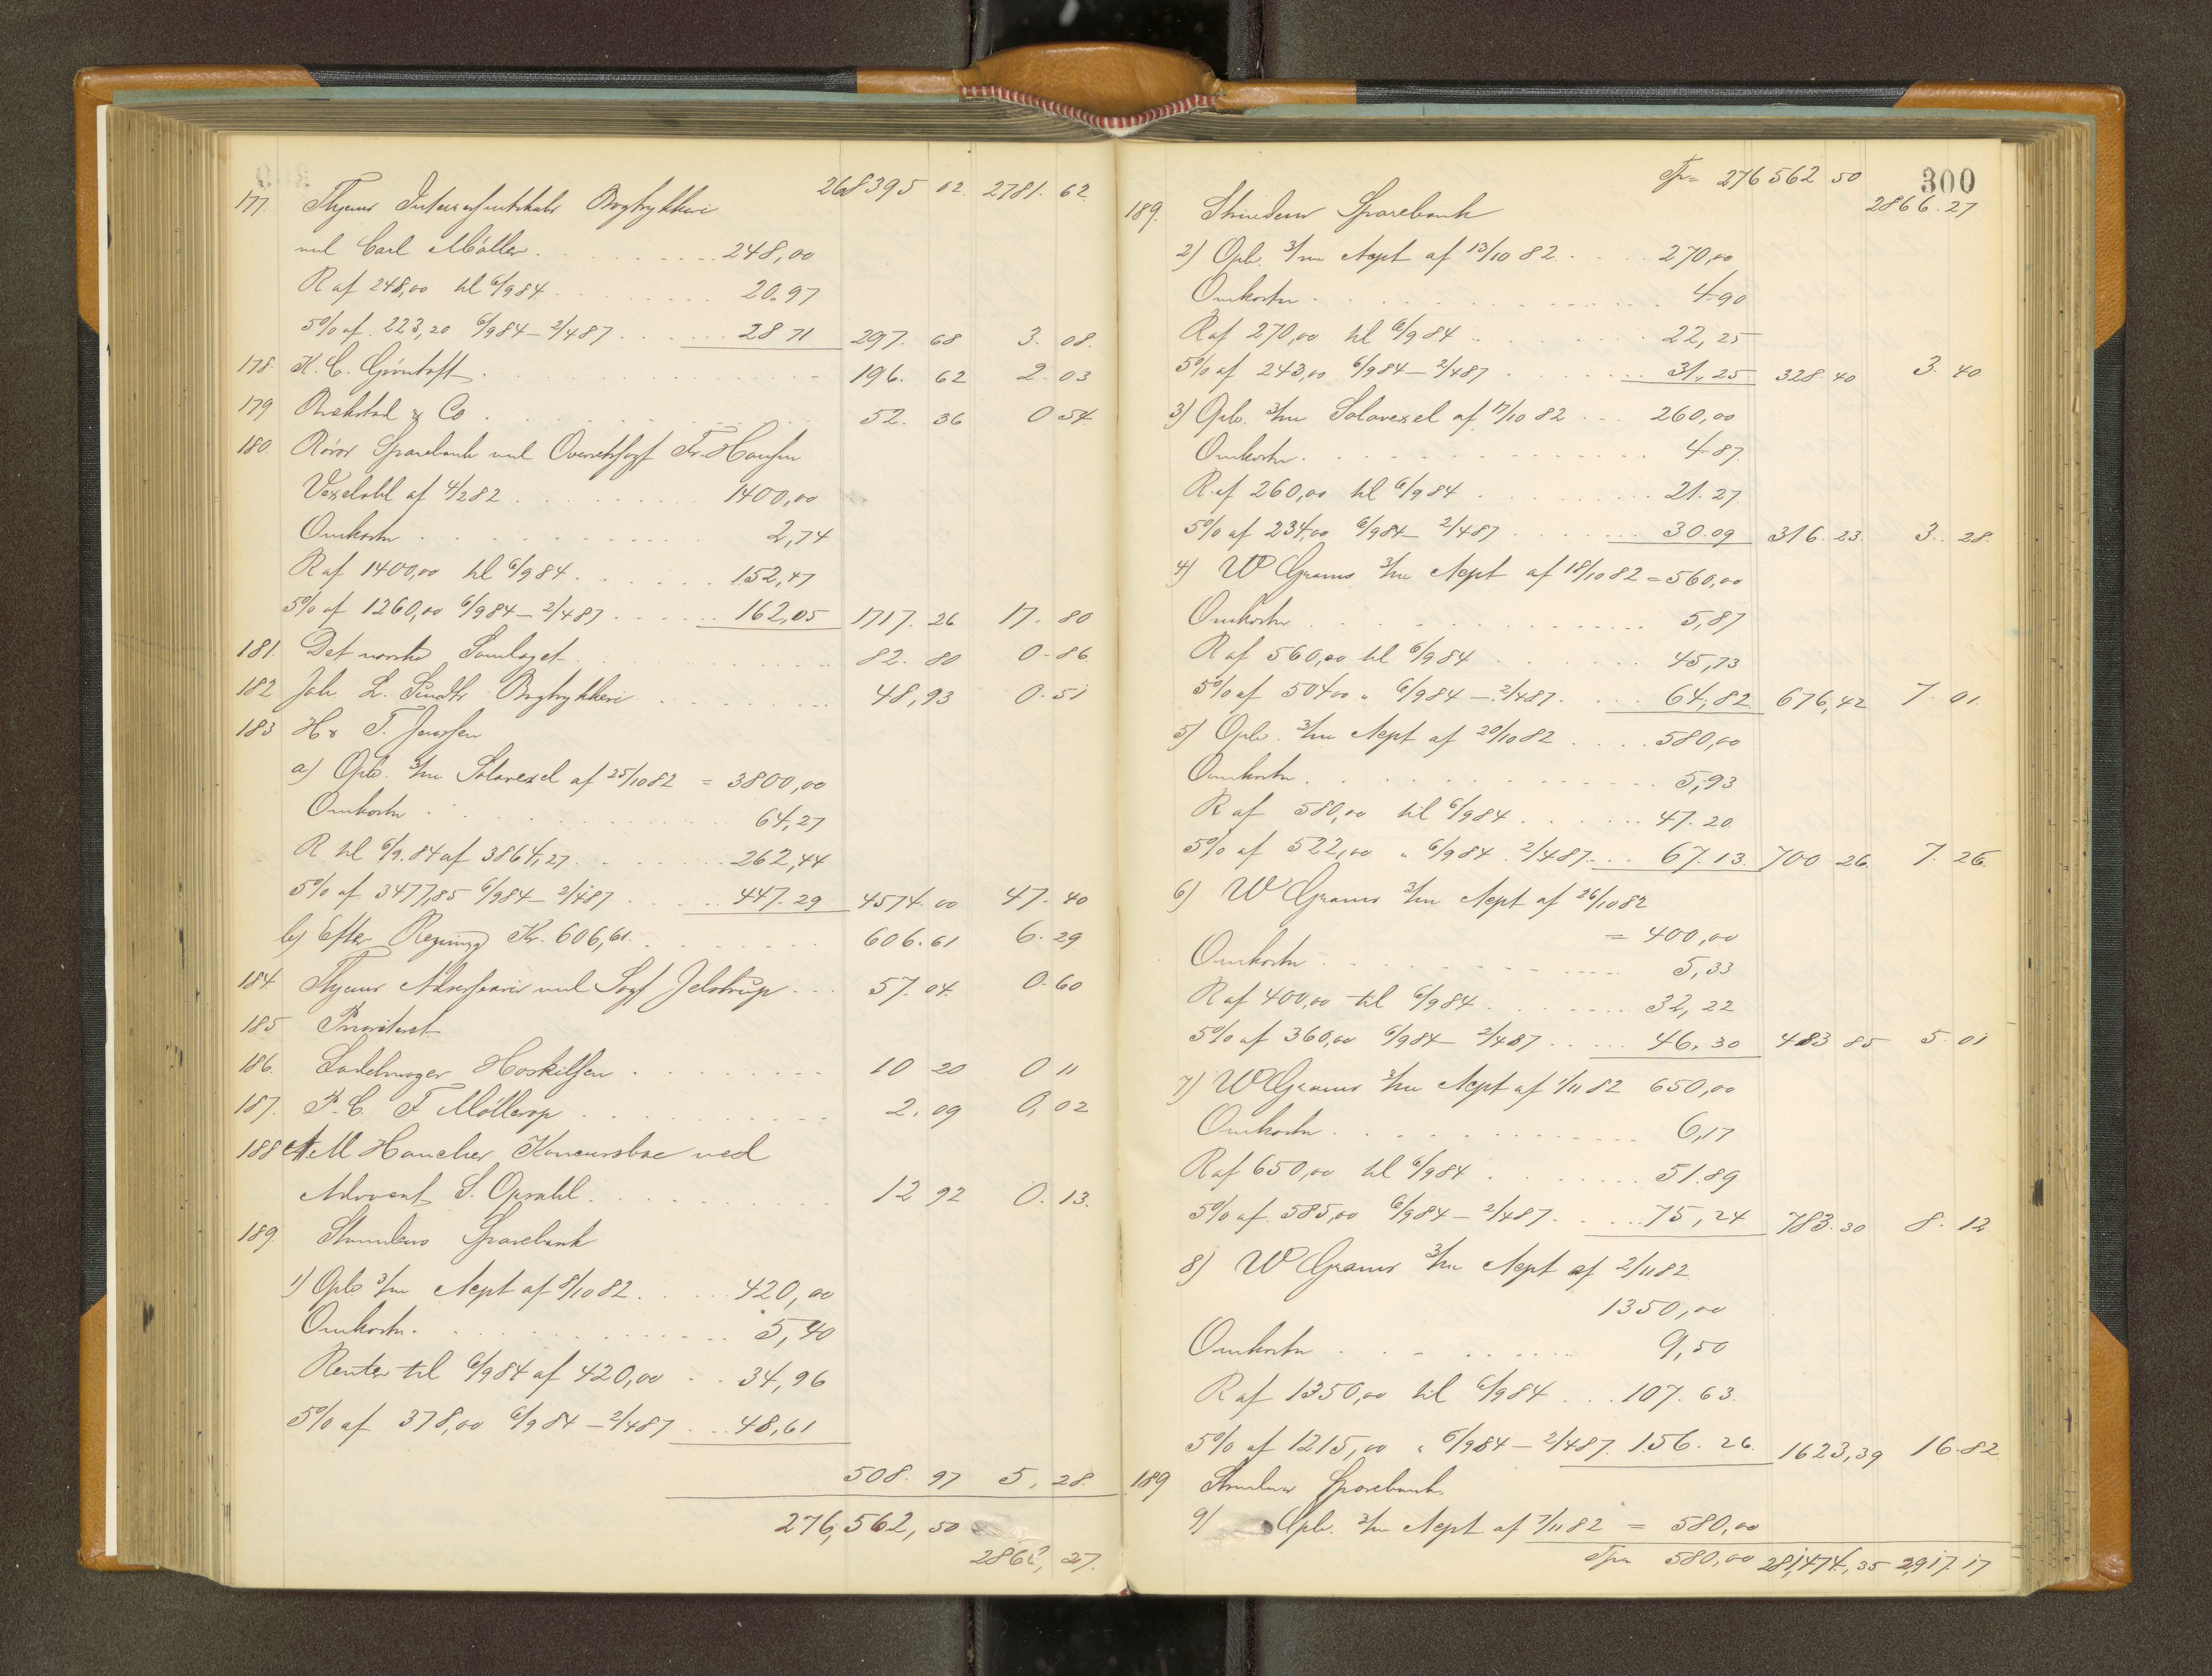 268395 02 2781. 62
177. Thjems Interessentskabs Bogtrykkeri
ved Carl Möller. 248,00
R af 248,00 til 6/9 84 20.97
5% af 223,20 6/9 84 – 2/4 87 28 71 297. 68 3. 08.
178. K. C. Grøntoft 196. 62 2. 03
179 Brækstad & Co 52. 36 0 54.
180. Röros Sparebank ved Overretssagf Fr. Hansen
Vexelobl af 4/2 82 1400,00
Omkostn 2,74
R af 1400,00 til 6/9 84 152,47
5% af 1260,00 6/9 84 – 2/4 87 162,05 1717. 26 17. 80
181. Det norske Samlaget 82. 80 0. 86.
182 Joh. L. Sundts Bogtrykkeri 48,93 0. 51
183 H & F. Jenssen
a) Opb. 3/m Solavexel af 25/10 82 = 3800,00
Omkostn 64,27
R til 6/9. 84 af 3864,27 262,44
5% af 3477,85 6/9 84 – 2/4 87 447. 29 4574. 00 47. 40
b) Efter Regning Kr. 606,61. 606. 61 6. 29
184. Thjems Adresseavis ved Sagf Jelstrup 57. 04. 0. 60
185 Prioriteret
186. Sadelmager Hoskilsen 10 20 0 11
187. P. C. F Möllerop 2. 09 0,02
188 A. M Hanches Konkursbo ved
Advocat S. Opsahl. 12 92 0. 13.
189. Strindens Sparebank
1) Opb 3/m Acpt af 8/10 82 420,00
Omkostn. 5,40
Renter til 6/9 84 af 420,00 34,96
5% af 378,00 6/9 84 – 2/4 87 48,61
508. 97 5, 28.
276,562,50
2866, 27.
Tpr 276 562 50 300
2866. 27
189. Strindens Sparebank
2) Opb. 3/m Acpt af 13/10 82. 270,00
Omkostn 4.90
R af 270,00 til 6/9 84 22,25
5% af 243,00 6/9 84 – 2/4 87 31,25 328 40 3. 40
3) Opb. 3/m Solavexel af 17/10 82 260,00
Omkostn. 4.87
R af 260,00 til 6/9 84 21. 27
5% af 234,00 6/9 84 – 2/4 87 30.09 316. 23. 3. 28.
4) W Grams 3/m Acpt af 18/10 82 = 560,00
Omkostn 5,87
R af 560,00 til 6/9 84 45,73
5% af 504 00 " 6/9 84 – 2/4 87. 64,82 676,42 7. 01.
5) Opb. 3/m Acpt af 20/10 82 580,00
Omkostn. 5,93
R af 580,00 til 6/9 84 47. 20
5% af 522,00 " 6/9 84. 2/4 87 67. 13. 700 26. 7. 26.
6) W Grams 3/m Acpt af 26/10 82
= 400,00
Omkostn 5,33
R af 400,00 til 6/9 84 32,22
5% af 360,00 6/9 84 – 2/4 87 46,30 483 85 5. 01
7) W Grams 3/m Acpt af 1/11 82 650,00
Omkostn. 6,17
R af 650,00 til 6/9 84 51.89
5% af 585,00 6/9 84 – 2/4 87. 75,24 783. 30 8. 12
8) W Grams 3/m Acpt af 2/11 82.
1350,00
Omkostn 9,50
R af 1350,00 til 6/9 84 107. 63.
5% af 1215,00 " 6/9 84 – 2/4 87. 156. 26. 1623,39 16.82
189 Strindens Sparebank
9) Opb. 3/m Acpt af 7/11 82 = 580,00
Tpr 580,00 281,474,35 2,917. 17